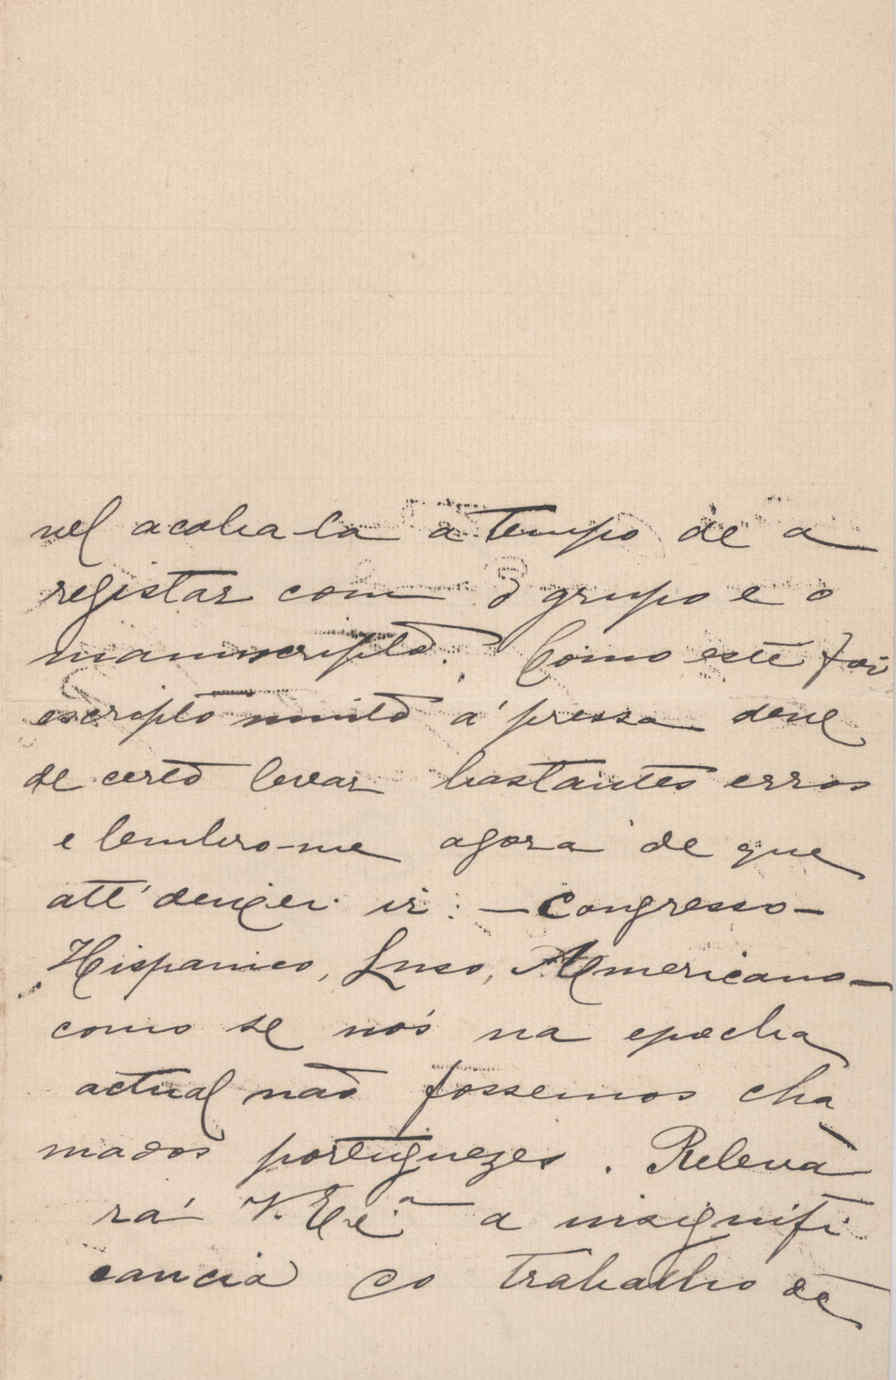 vel acaba-la a tempo de a
registar com o grupo e o
manuscripto. Como este foi
escripto muito á pressa deve
de certo levar bastantes erros
e lembro-me agora de que
atté deixei ir: — Congresso —
Hispanico, Luso, Americano —
como se nós na epocha
actual não fossemos cha
mados portuguezes. Releva
rá V. Ex.ª a insignifi
cancia do trabalho de